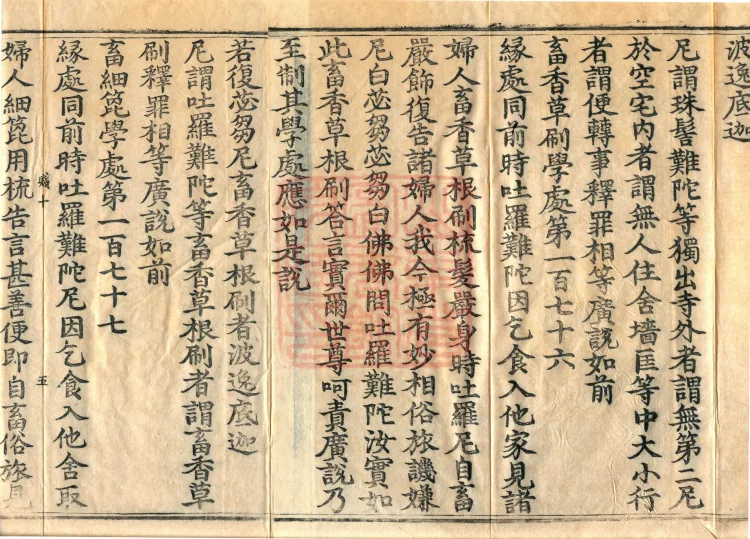 波逸底迦
尼謂珠髻難陀等獨出寺外者謂無第二尼
於空宅內者謂無人住舍墻匡等中大小行
者謂便轉事釋罪相等廣說如前
畜香草刷學處第一百七十六
緣處同前時吐羅難陀因乞食入他家見諸
婦人畜香草根刷梳髮嚴身時吐羅尼自畜
嚴飾復告諸婦人我今極有妙相俗旅譏嫌
尼白苾芻苾芻白佛佛問吐羅難陀汝實如
此畜香草根刷答言實爾世尊呵責廣說乃
至制其學處應如是說
若復苾芻尼畜香草根刷者波逸底迦
尼謂吐羅難陀等畜香草根刷者謂畜香草
刷釋罪相等廣說如前
畜細篦學處第一百七十七
緣處同前時吐羅難陀尼因乞食入他舍取
賤十 五
婦人細篦用梳告言甚善便即自畜俗旅見